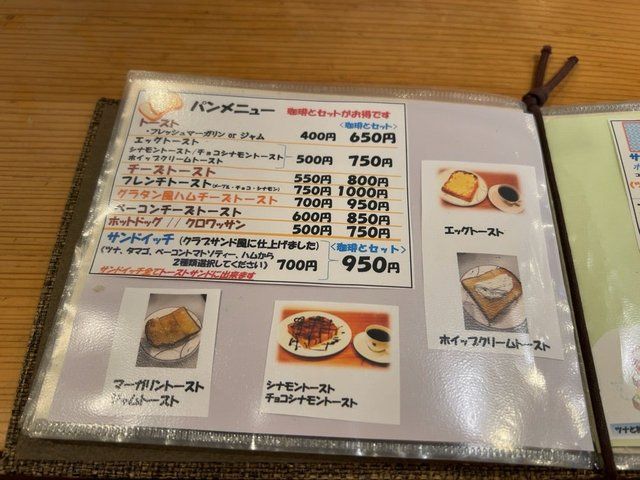 パンメニュー 珈琲とセットがお得です
トースト <珈琲とセット>
・フレッシュマーガリン or ジャム 400円 650円
エッグトースト
シナモントースト/チョコシナモントースト
ホイップクリームトースト 500円 750円
チーズトースト 550円 800円
フレンチトースト(メープル・チョコ・シナモン) 750円 1000円
グラタン風ハムチーズトースト 700円 950円
ベーコンチーズトースト 600円 850円
ホットドッグ // クロワッサン 500円 750円
サンドイッチ (クラブサンド風に仕上げました) <珈琲とセット>
(ツナ、タマゴ、ベーコントマトソティー、ハムから
2種類選択してください) 700円 950円
サンドイッチ全てトーストサンドに出来ます
エッグトースト
ホイップクリームトースト
マーガリントースト
トースト
シナモントースト
チョコシナモントースト